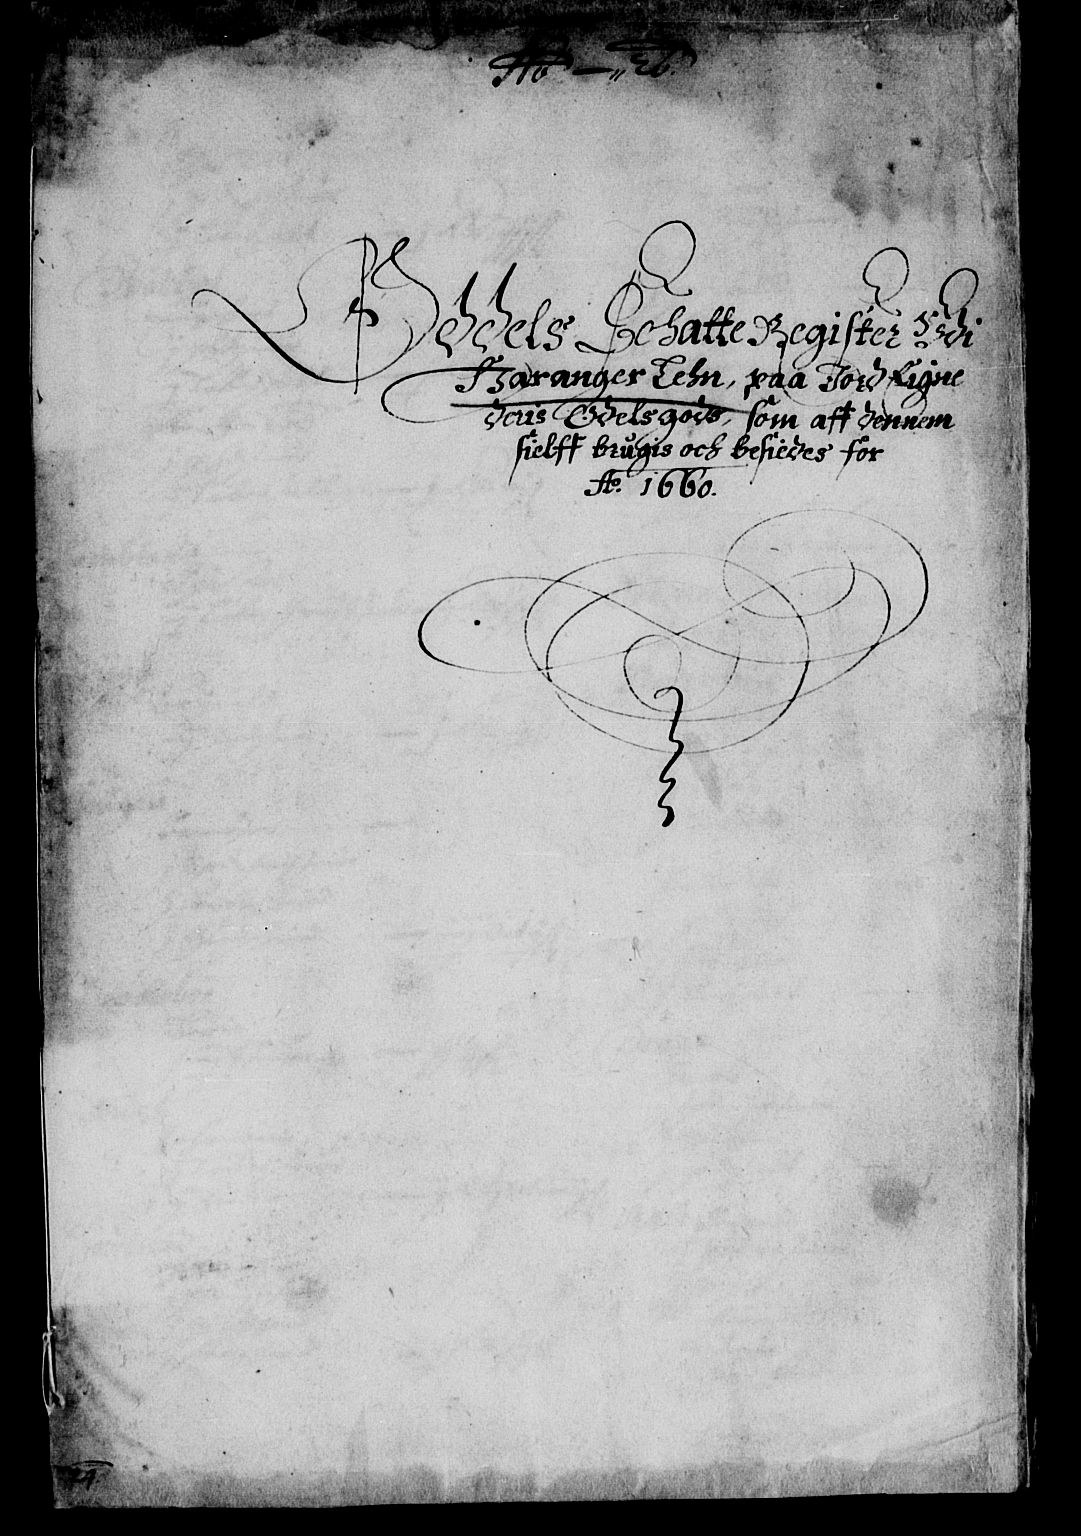 No — 26.
Oddels Schatte Register Udi
Haranger Lehn, paa Jord Eigne
deris Odelsgods, som aff dennem
sielff brugis och besiedes for
Ao. 1660.